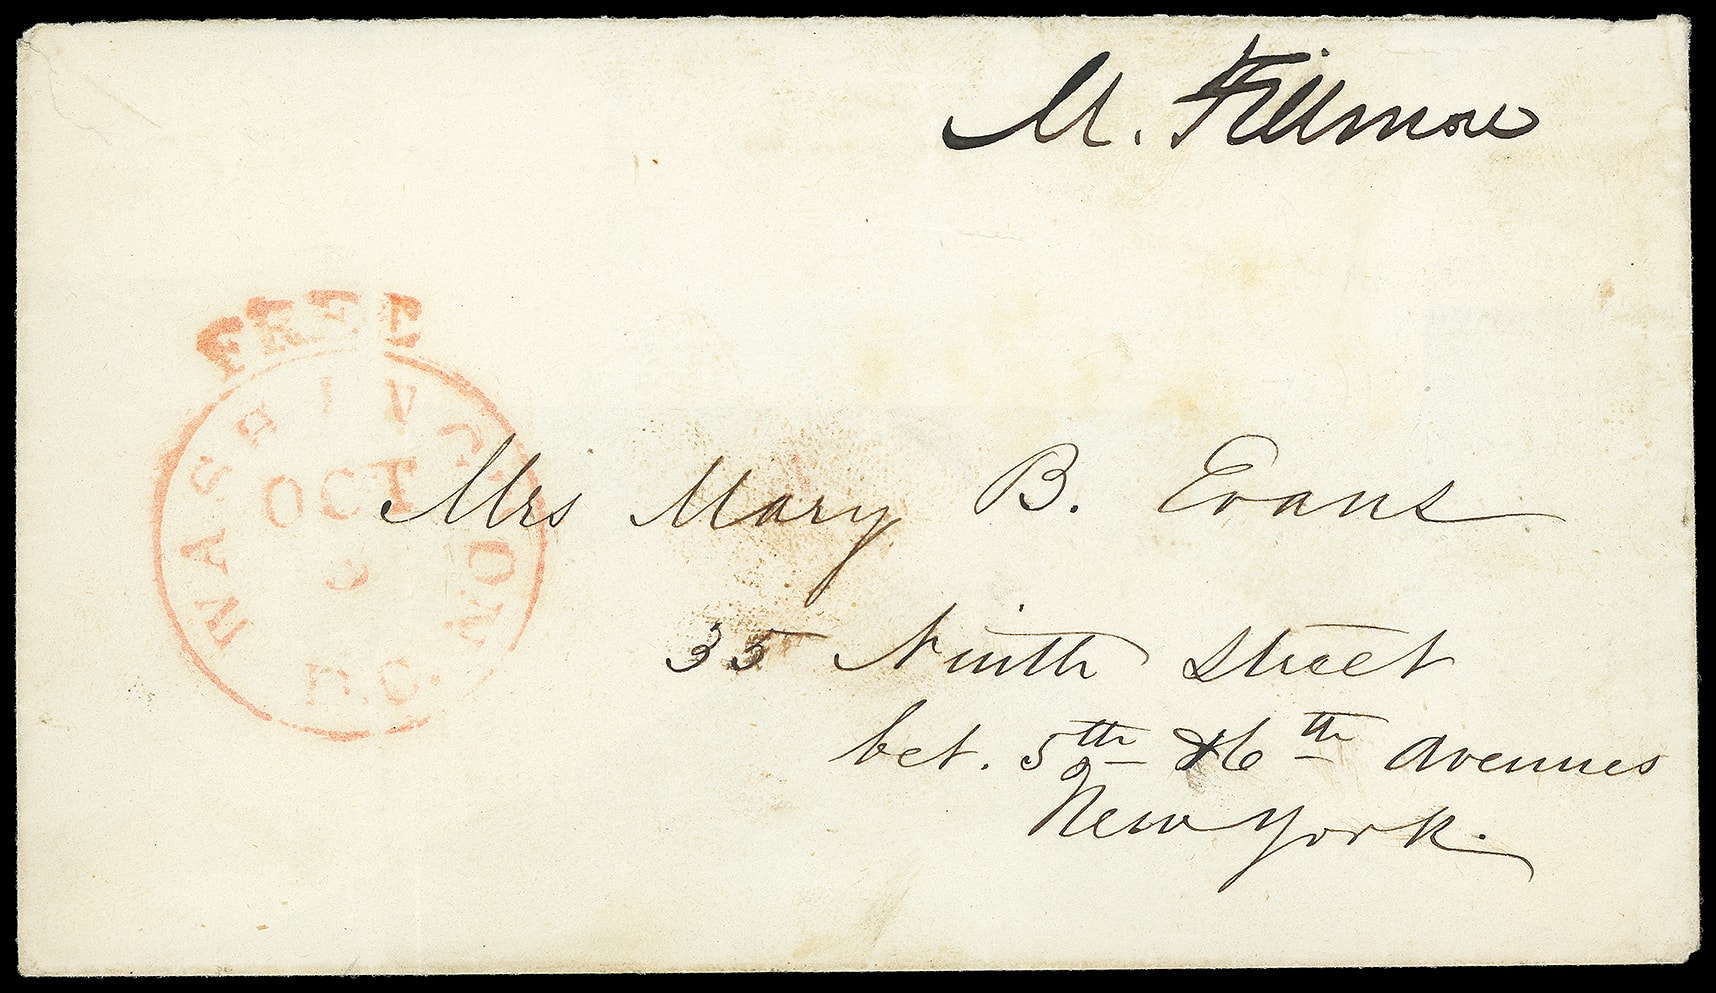 M. Fillmore
FREE
WASHINGTON
OCT
D.C.
Mrs Mary B. Evans
35 Ninth Street
bet. 5th & 6th Avenues
New York.